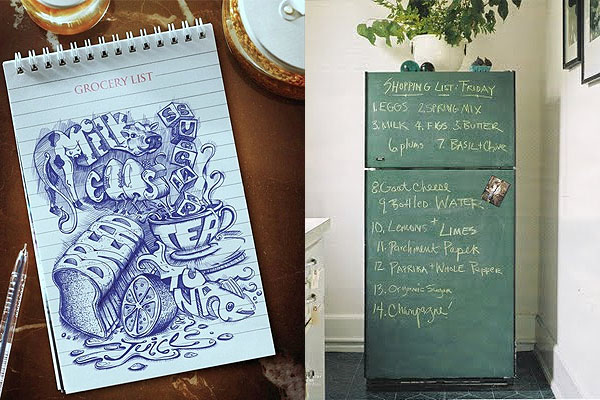 GROCERY LIST
MiLK
EGGS
SUGAR
BREAD
TEA
Juice
SHOPPING LIST: FRIDAY
1. EGGS 2. SPRING MIX
3. MILK 4. FIGS 5. BUTTER
6 plums 7. BASIL + Chive
8. Goat cheese
9. Bottled WATER
10. LEMONS + LIMES
11. Parchment Paper
12 PAPRIKA + WHOLE PEPPER
13. Organic Sugar
14. Champagne!